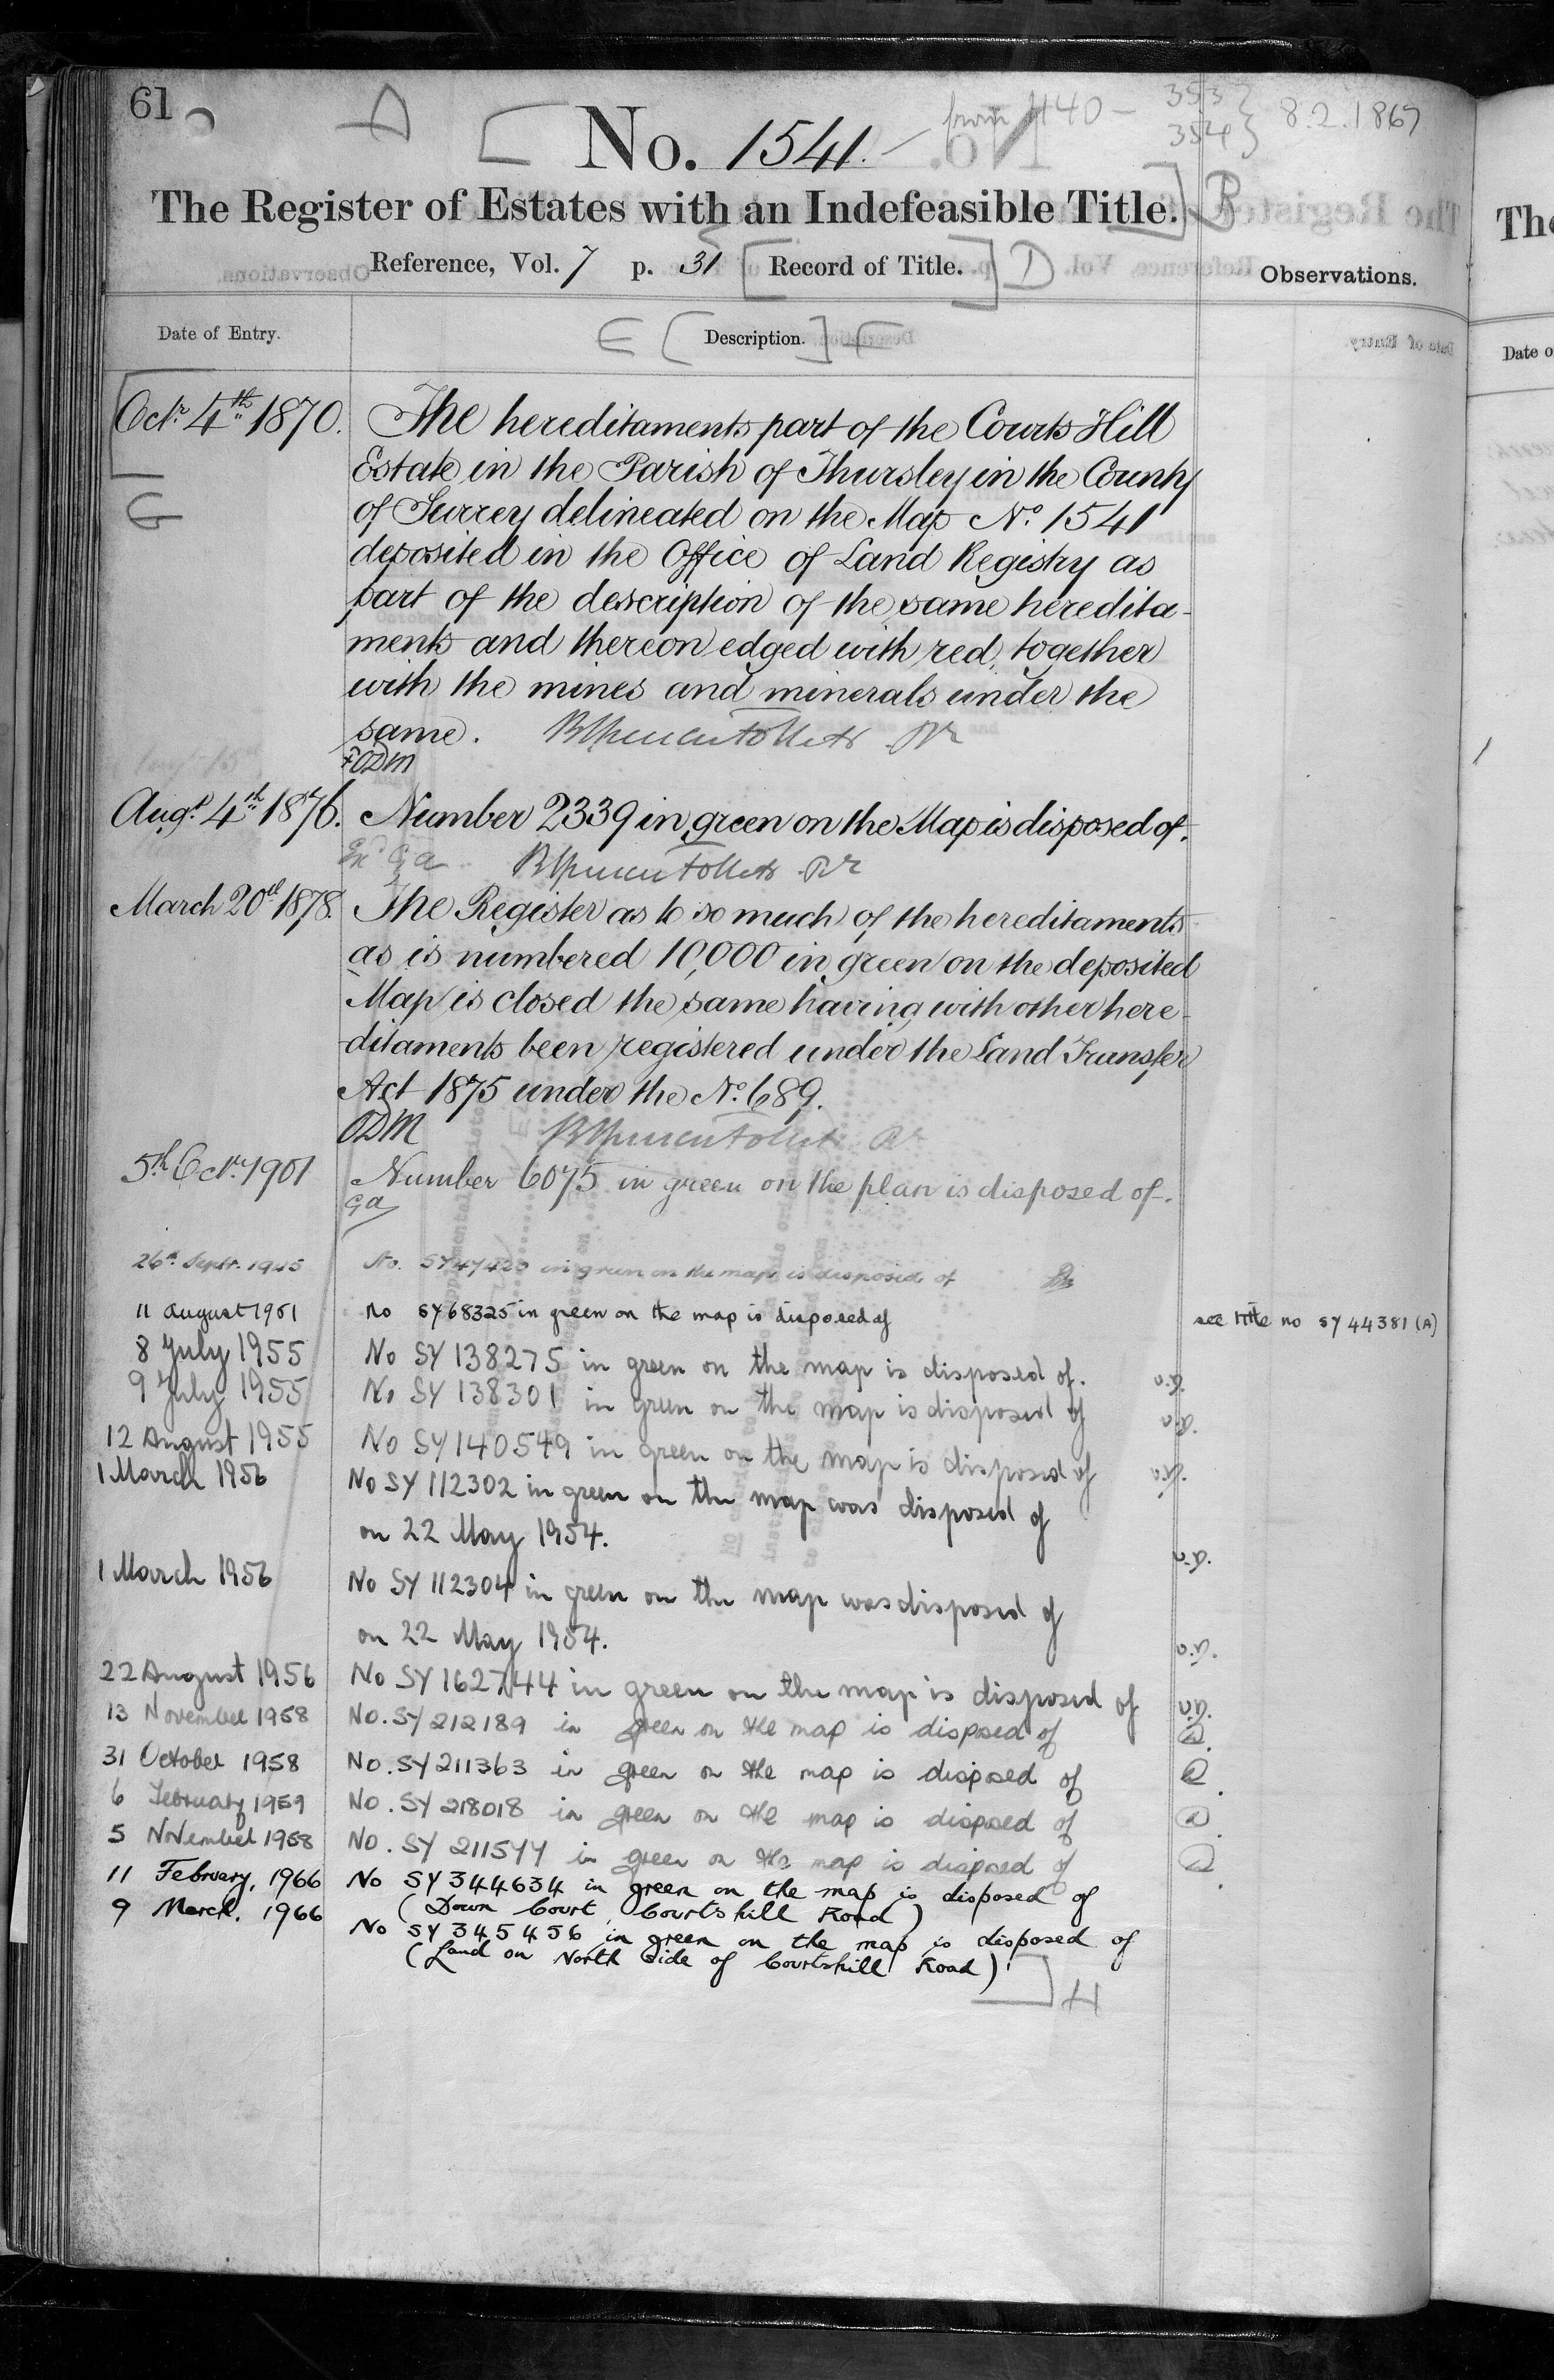 61
A
from 1140 - 353 } 8.2.1867
354 }
No. 1541.
The Register of Estates with an Indefeasible Title. B
Reference, Vol. 7 p. 31 [Record of Title.] D
Observations.
Date of Entry.
E [Description.] F
Octr. 4th 1870. The hereditaments part of the Courts Hill
Estate in the Parish of Thursley in the County
G
of Surrey delineated on the Map No. 1541
deposited in the Office of Land Registry as
part of the description of the same heredita-
ments and thereon edged with red, together
with the mines and minerals under the
same.
ODM
Augt. 4th 1876. Number 2339 in green on the Map is disposed of.
Exd. GA
March 20th 1878. The Register as to so much of the hereditaments
as is numbered 10,000 in green on the deposited
Map is closed the same having with other here-
ditaments been registered under the Land Transfer
Act 1875 under the No. 689.
ODM
5th Octr. 1901 Number 6075 in green on the plan is disposed of.
GA
26th Septr. 1945 No. in green on the map is disposed of
11 August 1951 No SY68325 in green on the map is disposed of see title no SY44381 (A)
8 July 1955 No SY 138275 in green on the map is disposed of.
9 July 1955 No SY 138301 in green on the map is disposed of
12 August 1955 No SY140549 in green on the map is disposed of
1 March 1956 No SY 112302 in green on the map was disposed of
on 22 May 1954.
1 March 1956 No SY 112304 in green on the map was disposed of
on 22 May 1954.
22 August 1956 No SY 162744 in green on the map is disposed of
13 November 1958 No. SY 212189 in green on the map is disposed of
31 October 1958 No. SY 211363 in green on the map is disposed of
6 February 1959 No. SY 218018 in green on the map is disposed of
5 November 1958 No. SY 211544 in green on the map is disposed of
11 February, 1966 No SY 344634 in green on the map is disposed of
(Down Court, Courtshill Road)
9 March, 1966 No SY 345456 in green on the map is disposed of
(Land on North Side of Courtshill Road)
H
The
Date o